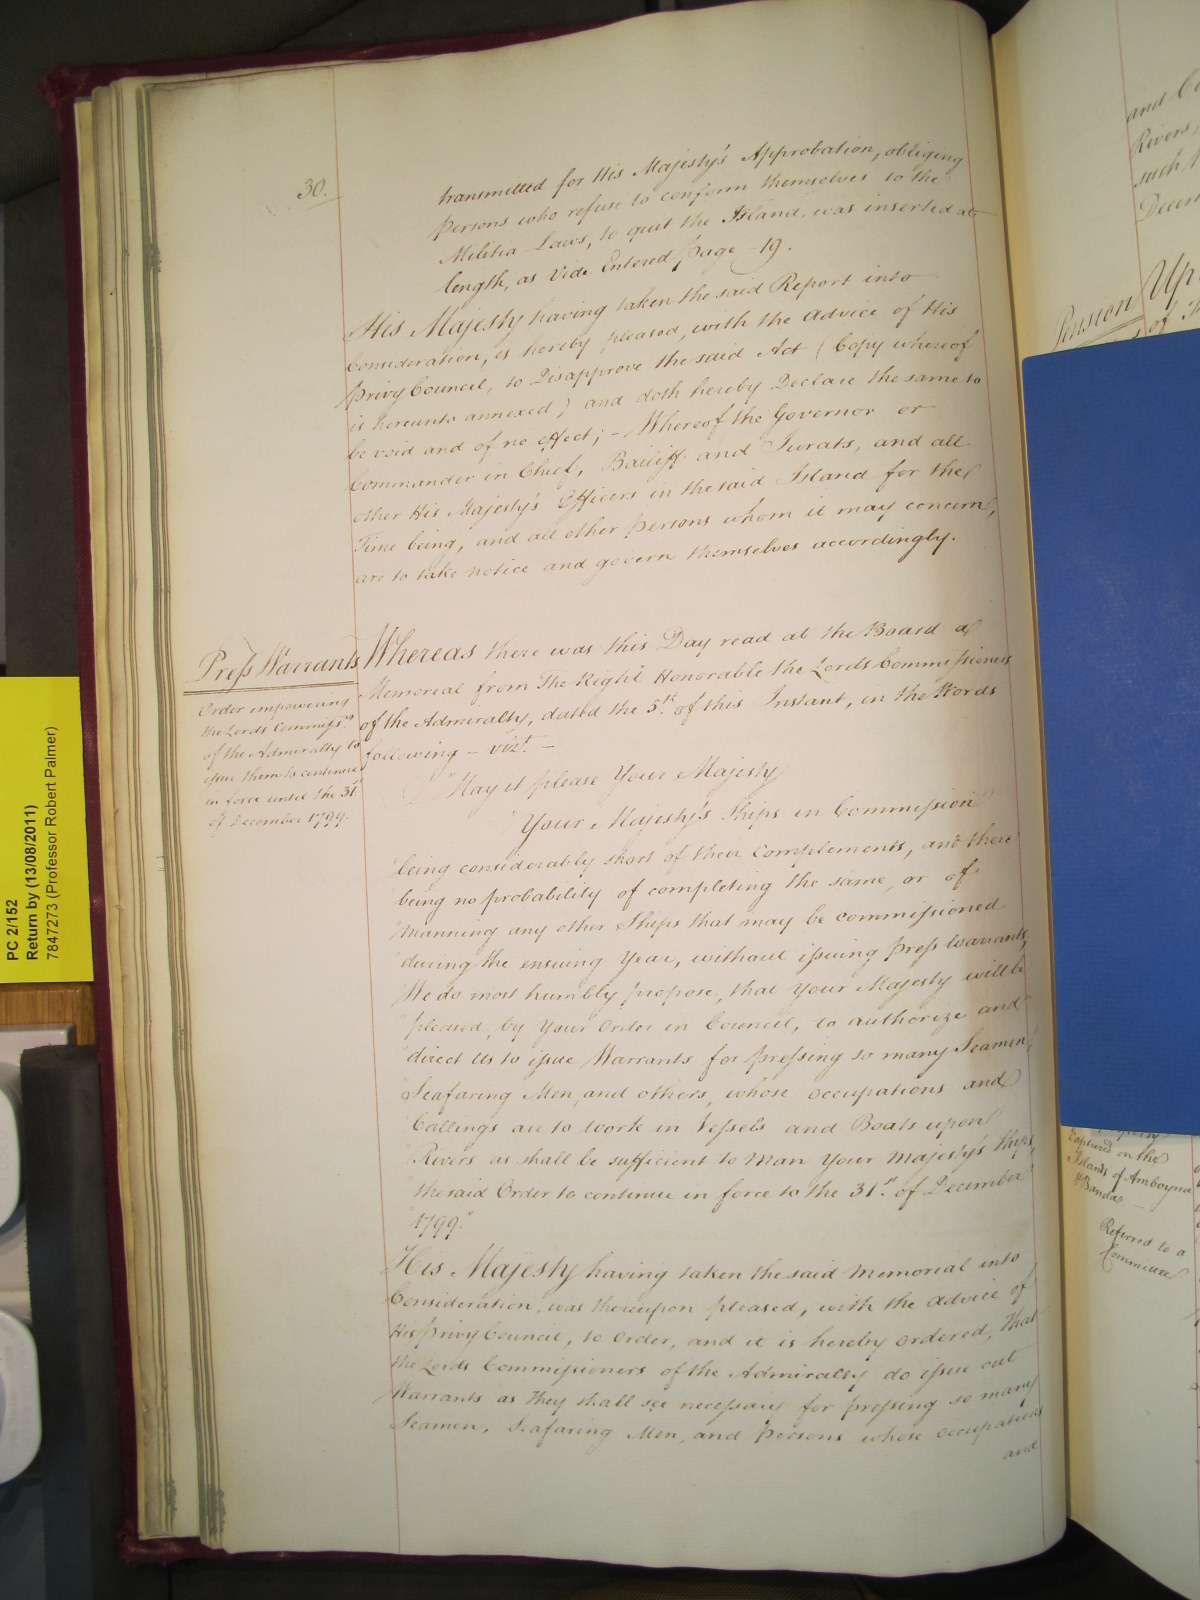 30.
transmitted for His Majesty's Approbation, obliging
persons who refuse to conform themselves to the
Militia Laws, to quit the Island, was inserted at
length, as Vide Entered page 19.
His Majesty having taken the said Report into
Consideration, is hereby pleased, with the Advice of His
Privy Council, to Disapprove the said Act (Copy whereof
is hereunto annexed) and doth hereby Declare the same to
be void and of no effect; – Whereof the Governor or
Commander in Chief, Bailiff and Jurats, and all
other His Majesty's Officers in the said Island for the
Time being, and all other persons whom it may concern,
are to take notice and govern themselves accordingly.
Press Warrants
Order empowering
the Lords Commissrs
of the Admiralty to
issue them to continue
in force until the 31st
of December 1799.
Whereas there was this Day read at the Board a
Memorial from The Right Honorable the Lords Commissioners
of the Admiralty, dated the 5th of this Instant, in the Words
following – vizt. –
"May it please Your Majesty
"Your Majesty's Ships in Commission
"being considerably short of their Complements, and there
"being no probability of completing the same, or of
"Manning any other Ships that may be commissioned
"during the ensuing Year, without issuing Press Warrants,
"We do most humbly propose, that Your Majesty will be
"pleased, by Your Order in Council, to authorize and
"direct Us to issue Warrants for pressing so many Seamen,
"Seafaring Men, and others, whose occupations and
"Callings are to work in Vessels and Boats upon
"Rivers as shall be sufficient to Man Your Majesty's Ships,
"the said Order to continue in force to the 31st of December
"1799."
His Majesty having taken the said Memorial into
Consideration, was thereupon pleased, with the Advice of
His Privy Council, to Order, and it is hereby ordered, that
the Lords Commissioners of the Admiralty do issue out
Warrants as they shall see necessary for pressing so many
Seamen, Seafaring Men, and persons whose occupations
and
PC 2/152
Return by (13/08/2011)
7847273 (Professor Robert Palmer)
and
Rivers,
such
Decem
Pension
Up
of
Captured on the
Islands of Amboyna
& Banda
Referred to a
Committee